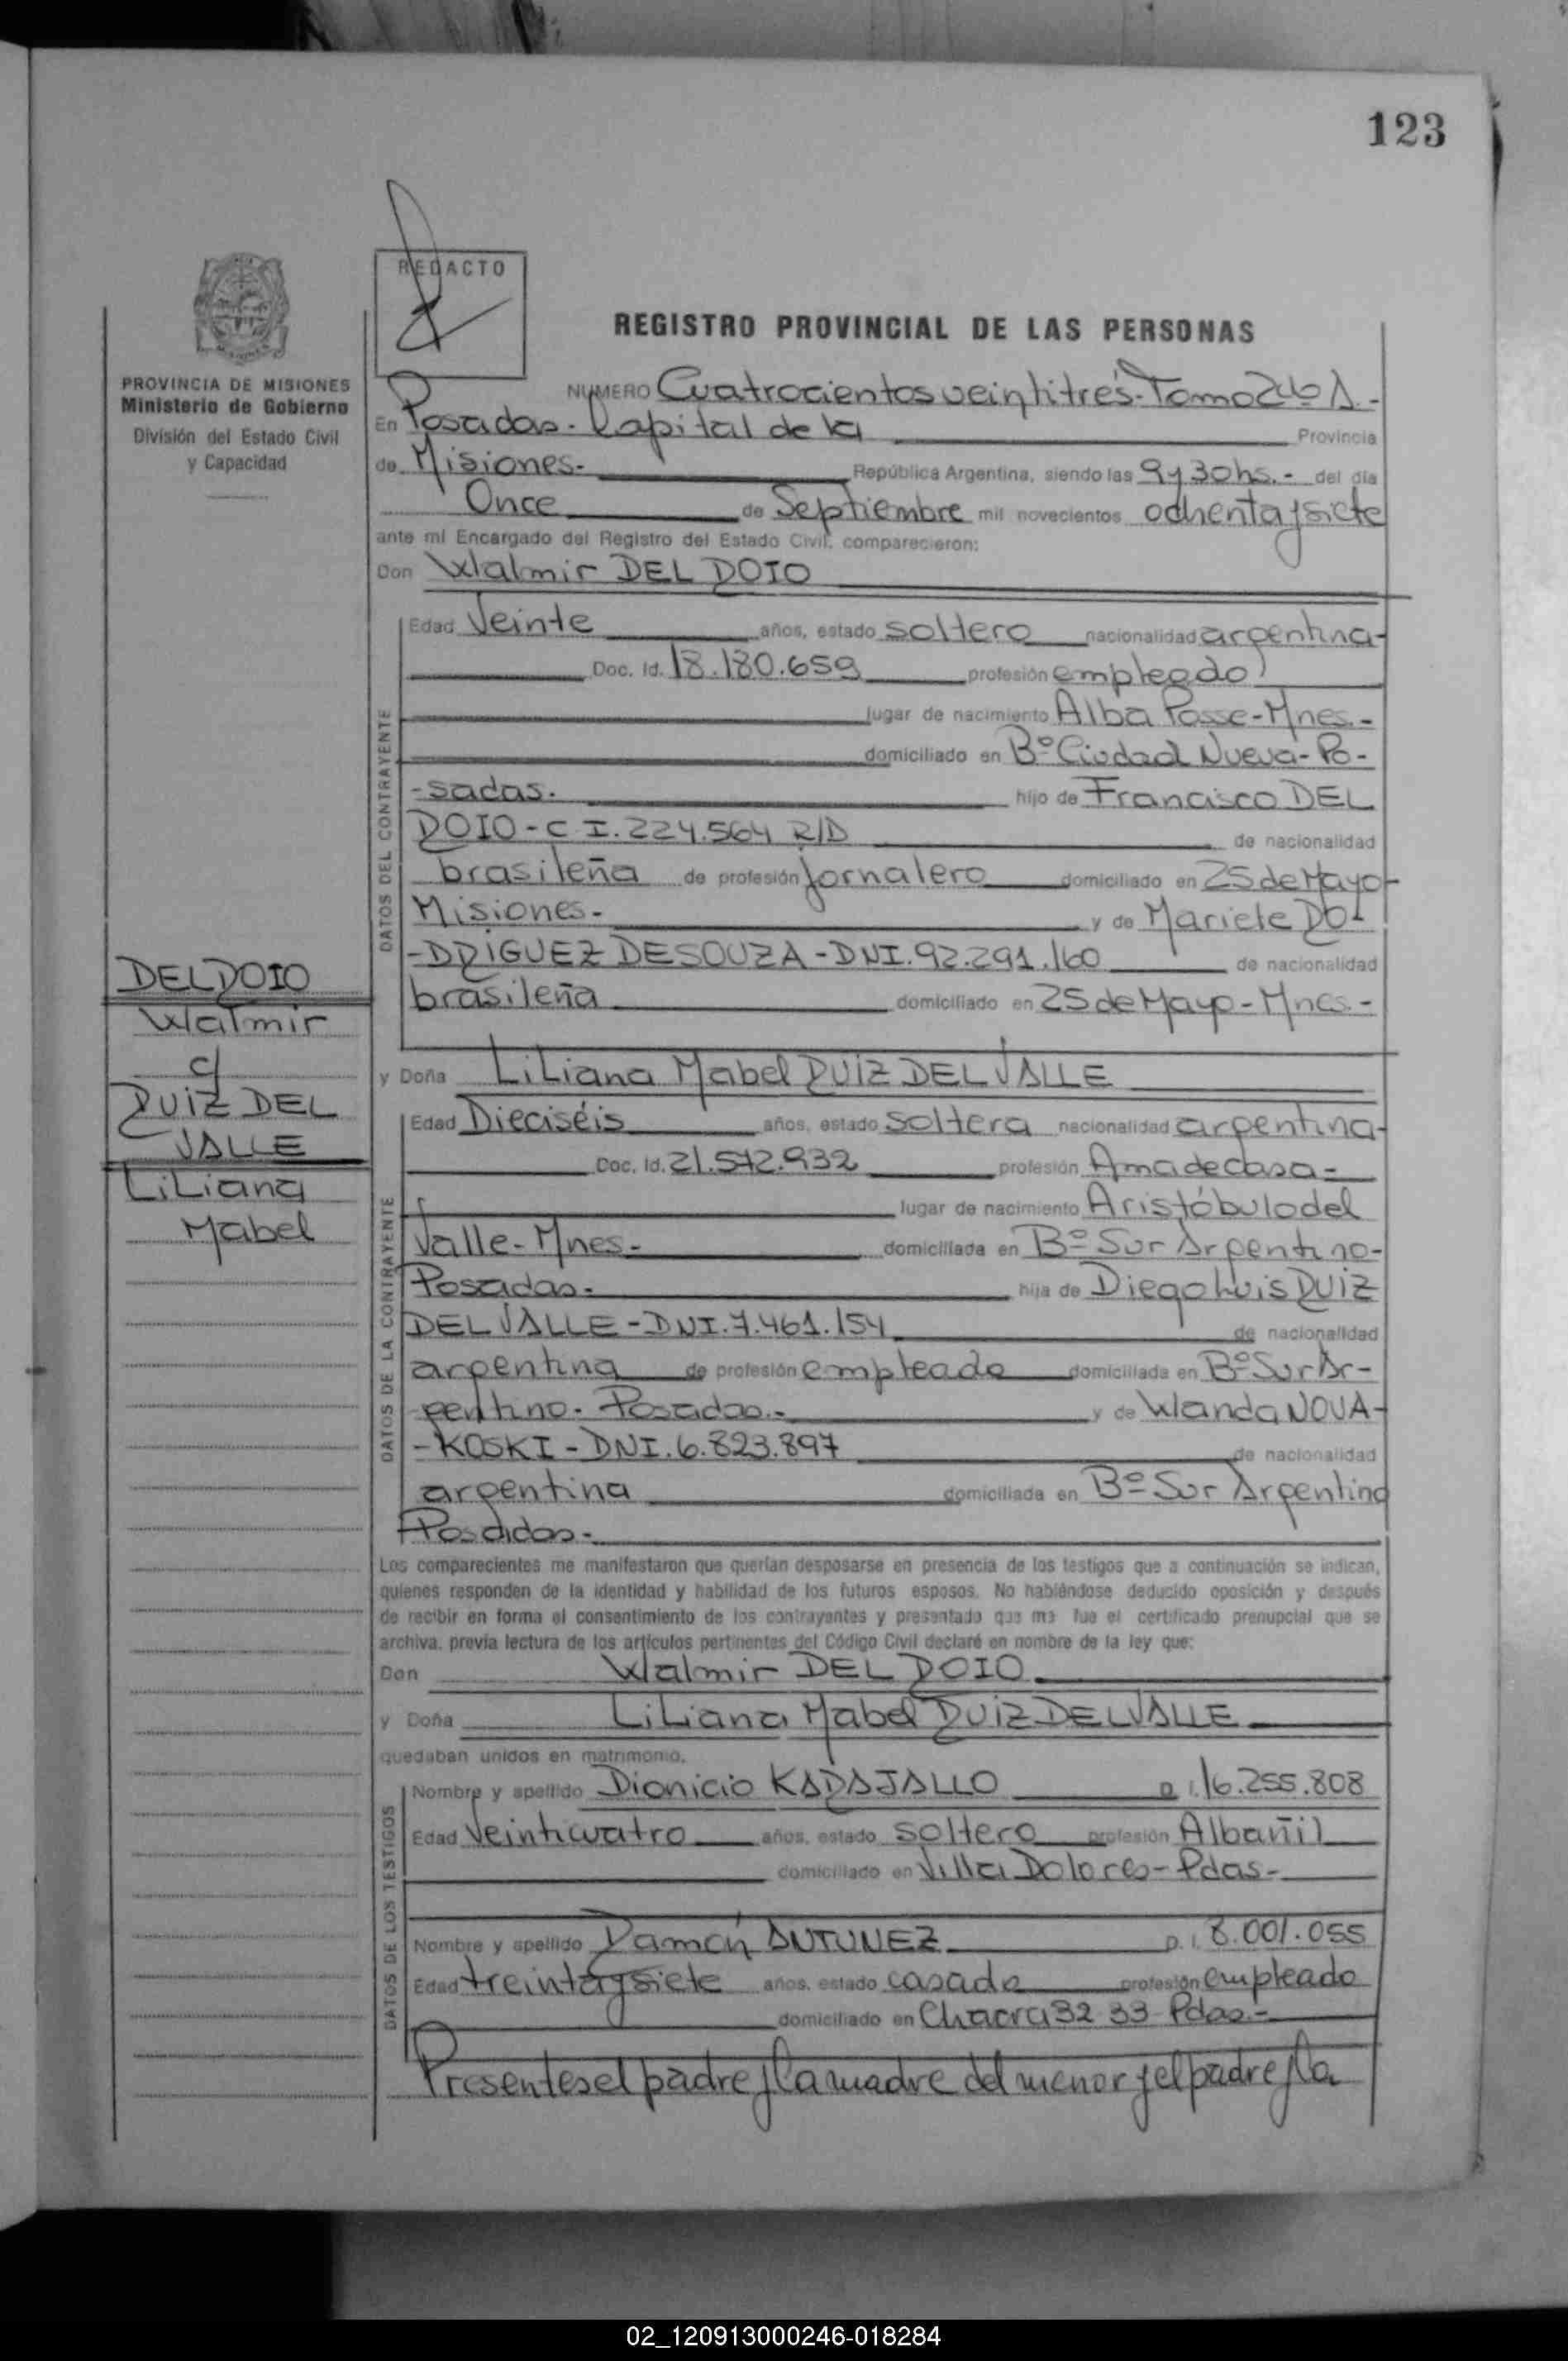 123
REDACTO
REGISTRO PROVINCIAL DE LAS PERSONAS
PROVINCIA DE MISIONES
Ministerio de Gobierno
División del Estado Civil
y Capacidad
NUMERO Cuatrocientos veintitrés - Tomo 2do A.-
En Posadas - Capital de la Provincia
de Misiones.- República Argentina, siendo las 9 y 30 hs.- del día
Once de Septiembre mil novecientos ochenta y siete
ante mí Encargado del Registro del Estado Civil, comparecieron:
Don Walmir DEL DOIO
DATOS DEL CONTRAYENTE
Edad Veinte años, estado soltero nacionalidad argentina-
Doc. Id. 18.180.659 profesión empleado
lugar de nacimiento Alba Posse-Mnes.-
domiciliado en Bº Ciudad Nueva-Po-
-sadas.- hijo de Francisco DEL
DOIO - C I. 224.564 R/D de nacionalidad
brasileña de profesión jornalero domiciliado en 25 de Mayo-
Misiones.- y de Mariele RO-
-DRIGUEZ DESOUZA - DNI. 92.291.160 de nacionalidad
brasileña domiciliado en 25 de Mayo-Mnes.-
DEL DOIO
Walmir
c/
RUIZ DEL
VALLE
Liliana
Mabel
y Doña Liliana Mabel RUIZ DEL VALLE
DATOS DE LA CONTRAYENTE
Edad Dieciséis años, estado soltera nacionalidad argentina-
Doc. Id. 21.542.932 profesión Ama de casa-
lugar de nacimiento Aristóbulo del
Valle-Mnes- domiciliada en Bº Sur Argentino-
Posadas.- hija de Diego Luis RUIZ
DEL VALLE - DNI. 7.461.154 de nacionalidad
argentina de profesión empleado domiciliada en Bº Sur Ar-
gentino - Posadas.- y de Wanda NOVA-
-KOSKI - DNI. 6.823.897 de nacionalidad
argentina domiciliada en Bº Sur Argentino
Posadas.-
Los comparecientes me manifestaron que querían desposarse en presencia de los testigos que a continuación se indican,
quienes responden de la identidad y habilidad de los futuros esposos. No habiéndose deducido oposición y después
de recibir en forma el consentimiento de los contrayentes y presentado que me fue el certificado prenupcial que se
archiva, previa lectura de los artículos pertinentes del Código Civil declaré en nombre de la ley que:
Don Walmir DEL DOIO
y Doña Liliana Mabel RUIZ DEL VALLE
quedaban unidos en matrimonio.
DATOS DE LOS TESTIGOS
Nombre y apellido Dionicio KARAJALLO D. I. 16.255.808
Edad Veinticuatro años, estado soltero profesión Albañil
domiciliado en Villa Dolores - Pdas-
Nombre y apellido Ramón ANTUNEZ D. I. 8.001.055
Edad treinta y siete años, estado casado profesión empleado
domiciliado en Chacra 32 33 Pdas.-
Presentes el padre y la madre del menor y el padre y la
02_120913000246-018284